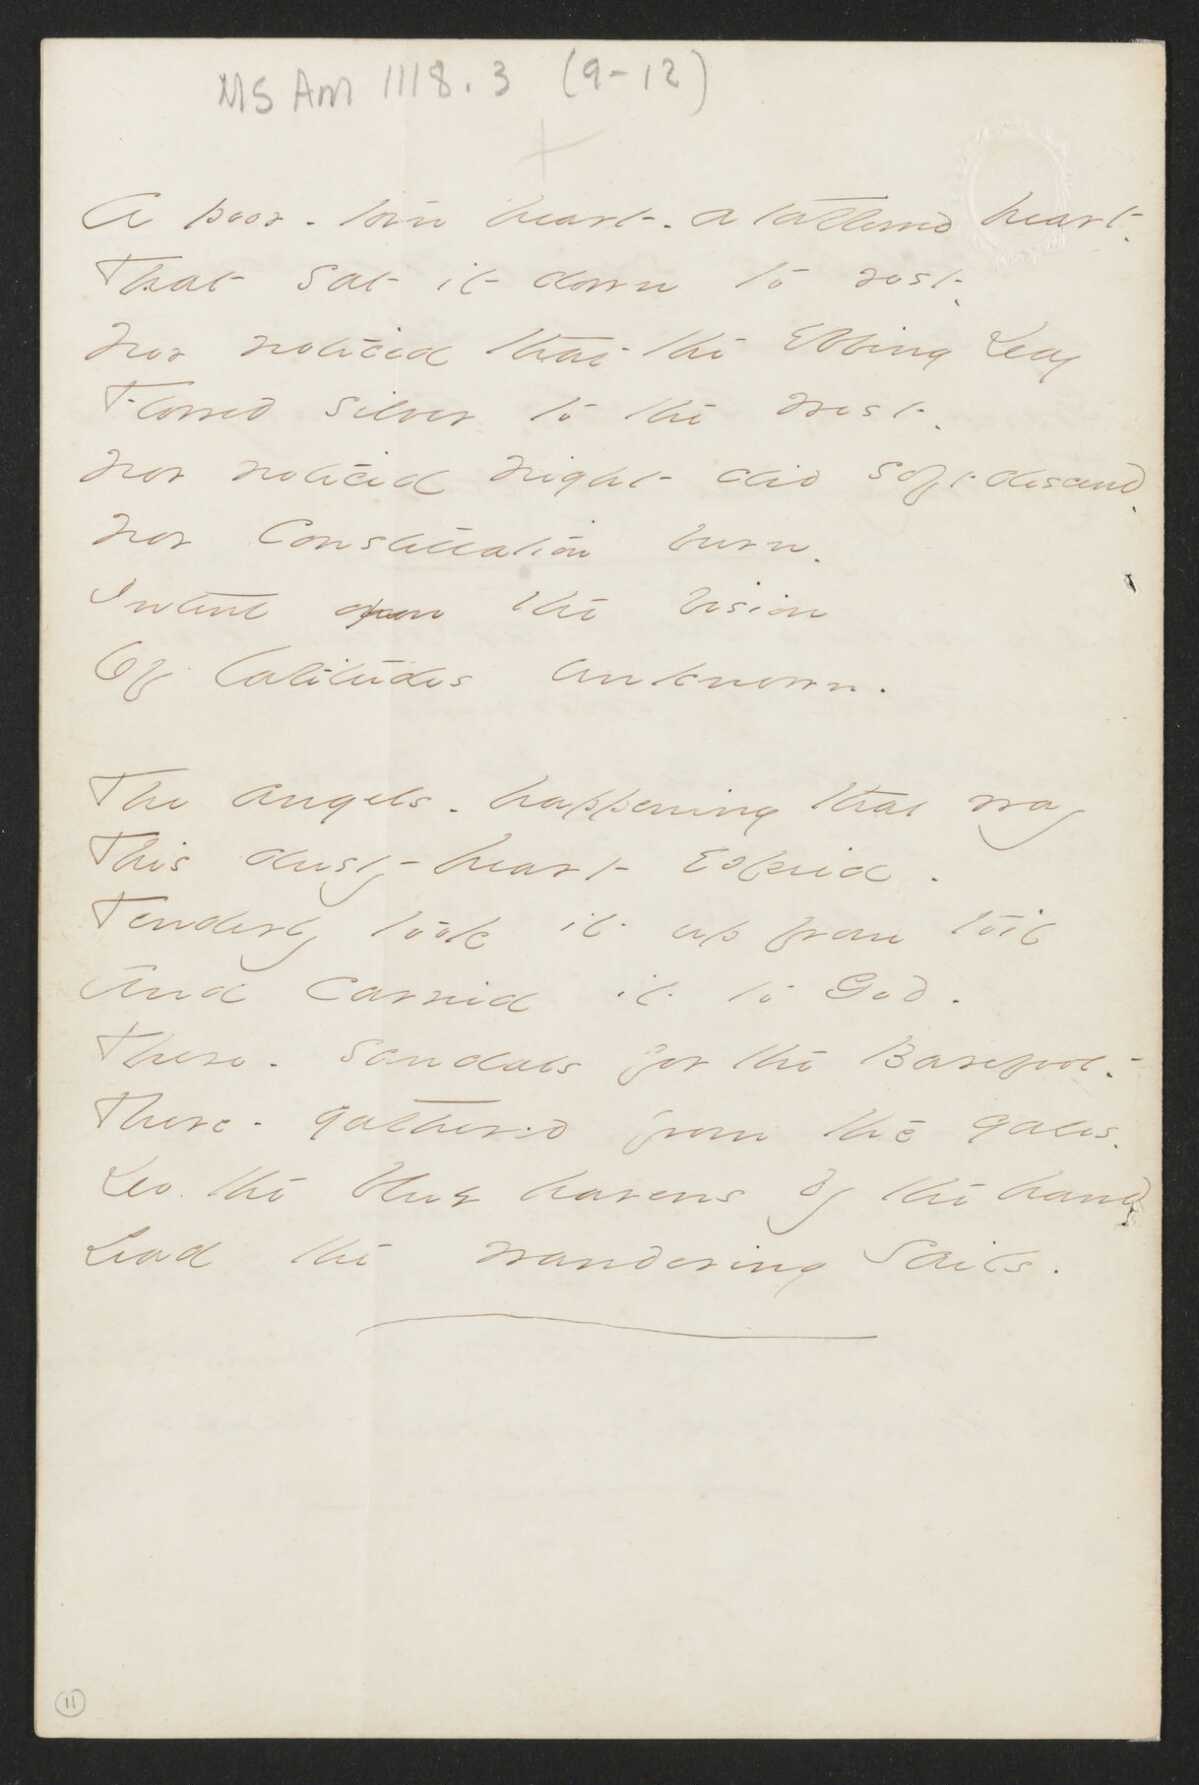 MS Am 1118.3 (9-12)
A poor - torn heart - a tattered heart -
That sat it down to rest -
Nor noticed that the Ebbing Day
Flowed silver to the West -
Nor noticed Night did soft descend,
Nor Constellation burn -
Intent upon the vision
Of latitudes unknown.
The angels - happening that way
This dusty heart espied -
Tenderly took it up from toil
And carried it to God -
There - sandals for the Barefoot -
There - gathered from the gales -
Do the blue havens by the hand
Lead the wandering Sails.
11